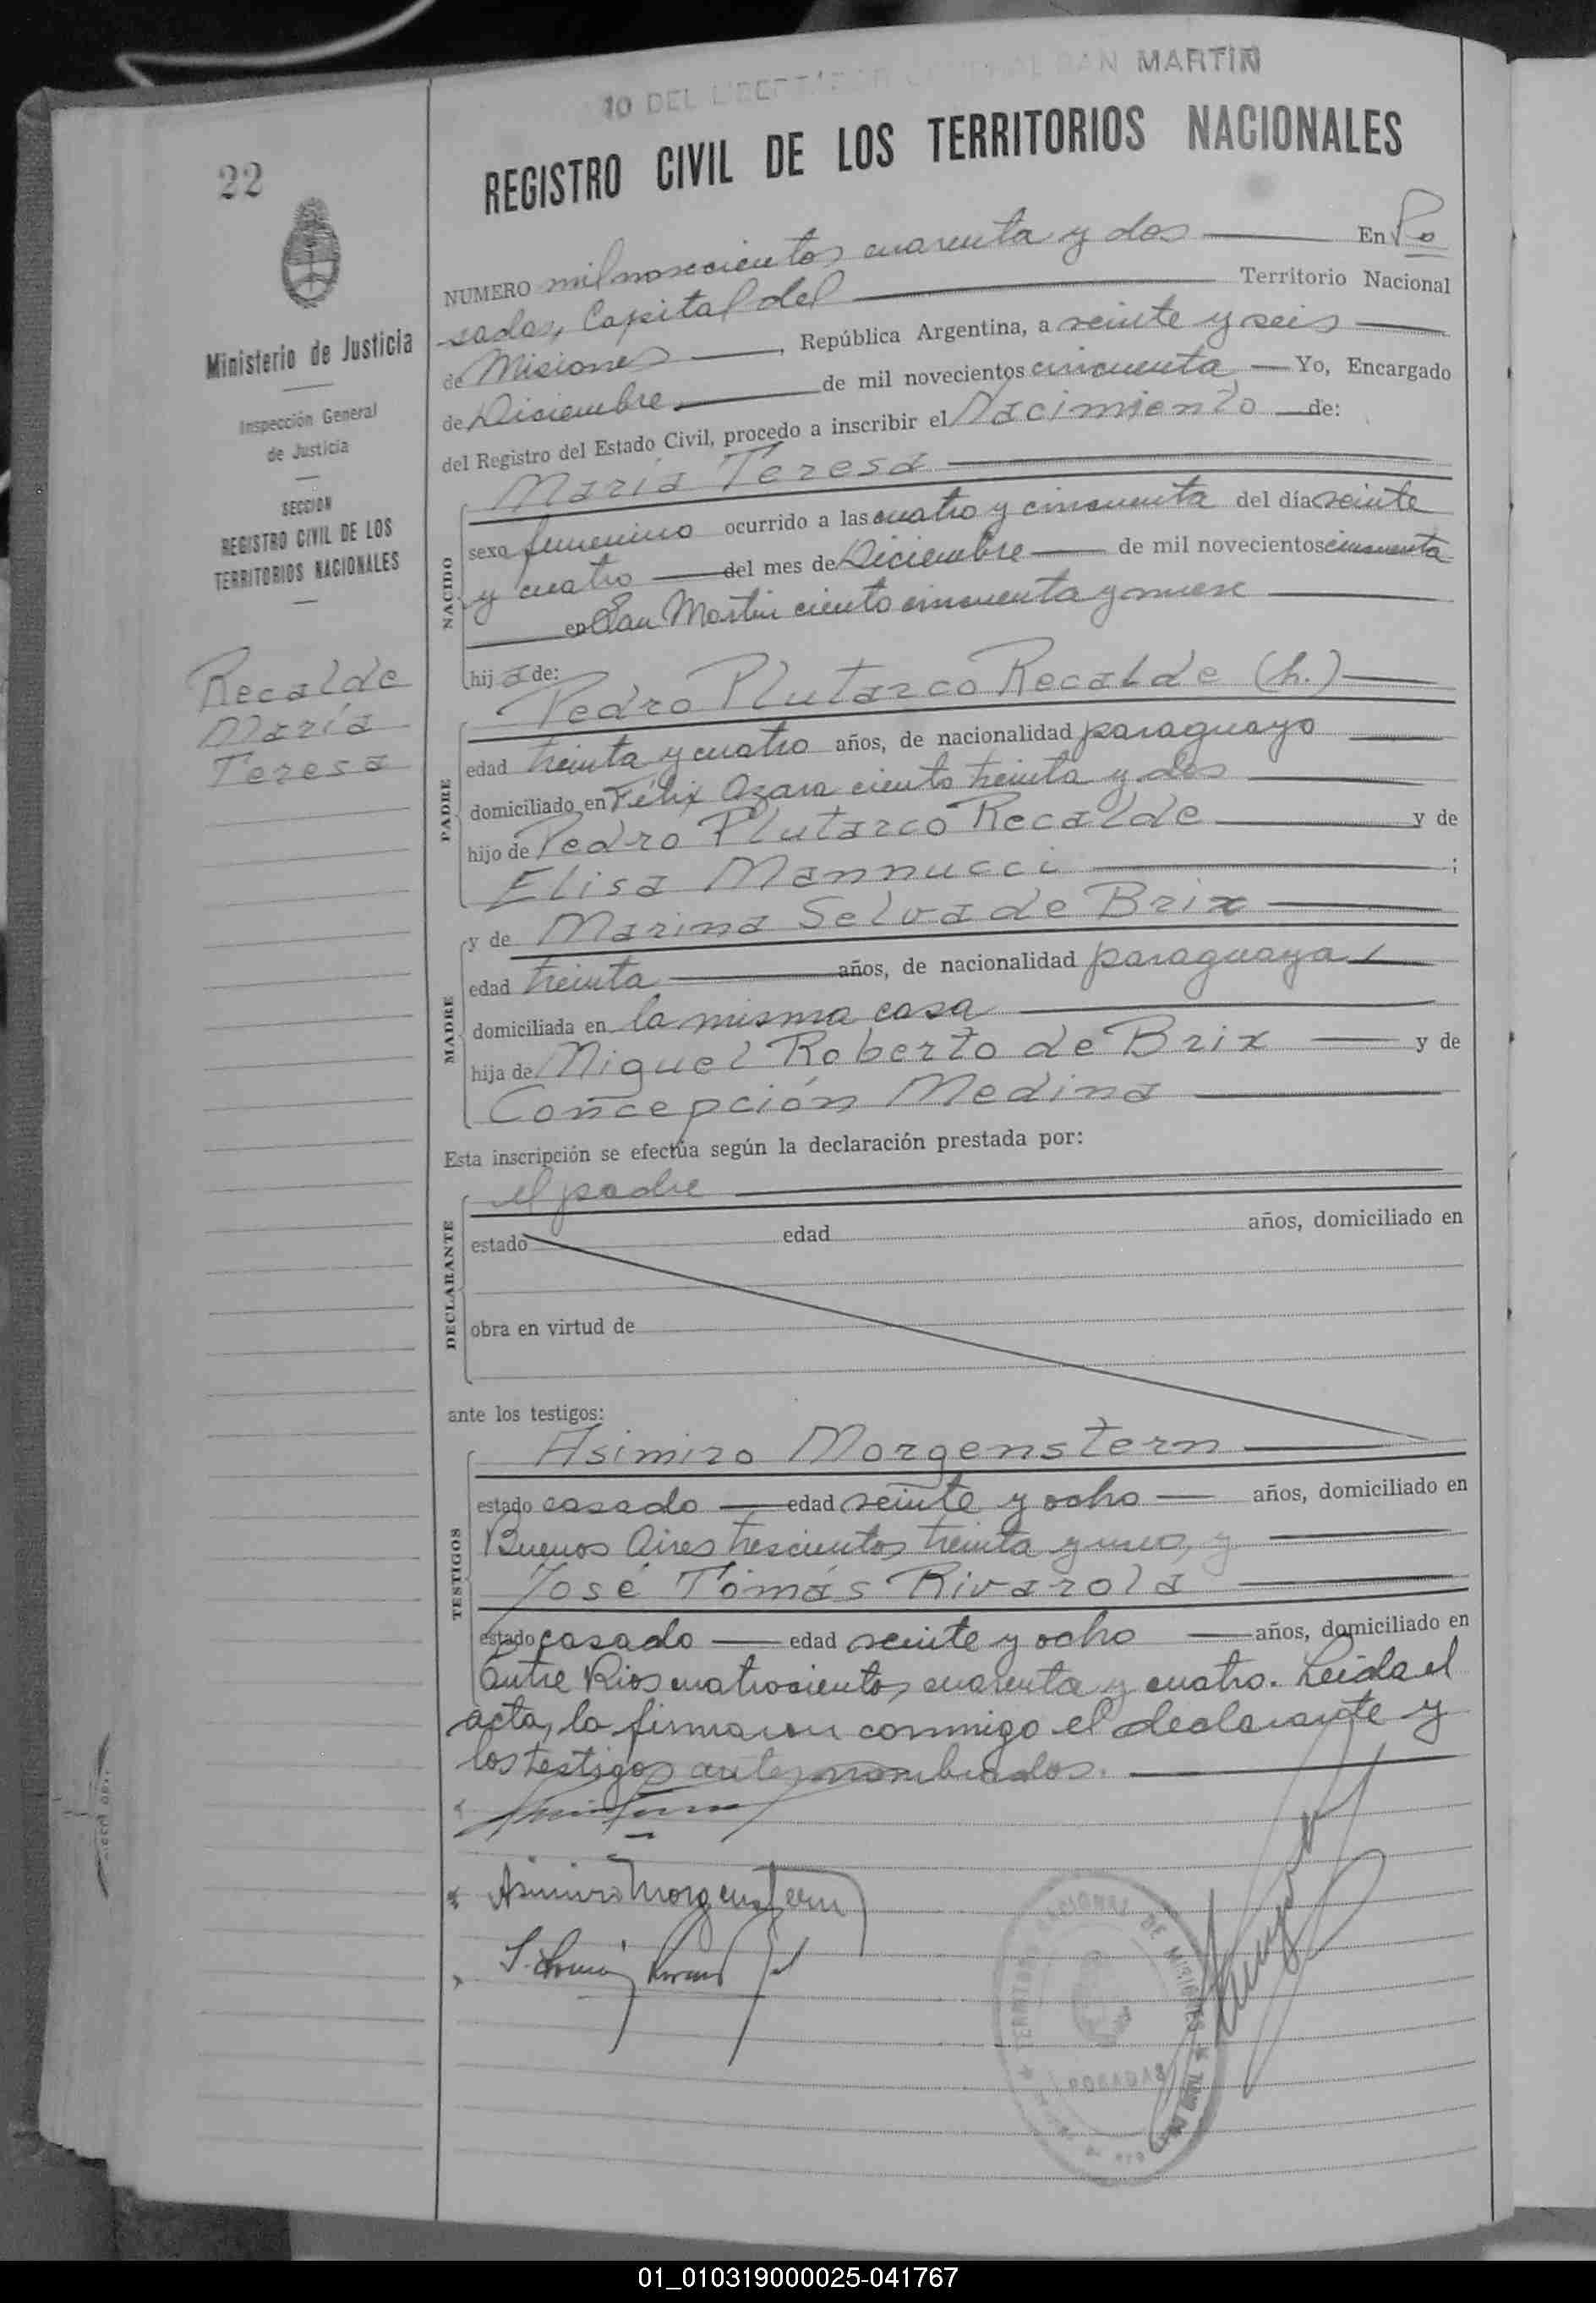 10 DEL LIBERTADOR GENERAL SAN MARTIN
REGISTRO CIVIL DE LOS TERRITORIOS NACIONALES
22
Ministerio de Justicia
Inspección General
de Justicia
SECCION
REGISTRO CIVIL DE LOS
TERRITORIOS NACIONALES
Recalde
María
Teresa
NUMERO mil novecientos cuarenta y dos En Po
sadas, Capital del Territorio Nacional
de Misiones, República Argentina, a veinte y seis
de Diciembre de mil novecientos cincuenta Yo, Encargado
del Registro del Estado Civil, procedo a inscribir el Nacimiento de:
NACIDO
María Teresa
sexo femenino ocurrido a las cuatro y cincuenta del día veinte
y cuatro del mes de Diciembre de mil novecientos cincuenta
en San Martin ciento cincuenta y nueve
hija de:
PADRE
Pedro Plutarco Recalde (h.)
edad treinta y cuatro años, de nacionalidad paraguayo
domiciliado en Félix Azara ciento treinta y dos
hijo de Pedro Plutarco Recalde y de
Elisa Mannucci ;
MADRE
y de Marina Selva de Brix
edad treinta años, de nacionalidad paraguaya,
domiciliada en la misma casa
hija de Miguel Roberto de Brix y de
Concepción Medina
Esta inscripción se efectúa según la declaración prestada por:
DECLARANTE
el padre
estado edad años, domiciliado en
obra en virtud de
ante los testigos:
TESTIGOS
Asimiro Morgenstern
estado casado edad veinte y ocho años, domiciliado en
Buenos Aires trescientos treinta y uno, y
José Tomás Rivarola
estado casado edad veinte y ocho años, domiciliado en
Entre Rios cuatrocientos cuarenta y cuatro. Leida el
acta, la firmaron conmigo el declarante y
los testigos antes nombrados.
Asimiro Morgenstern
TERRITORIO NACIONAL DE MISIONES
POSADAS
01_010319000025-041767